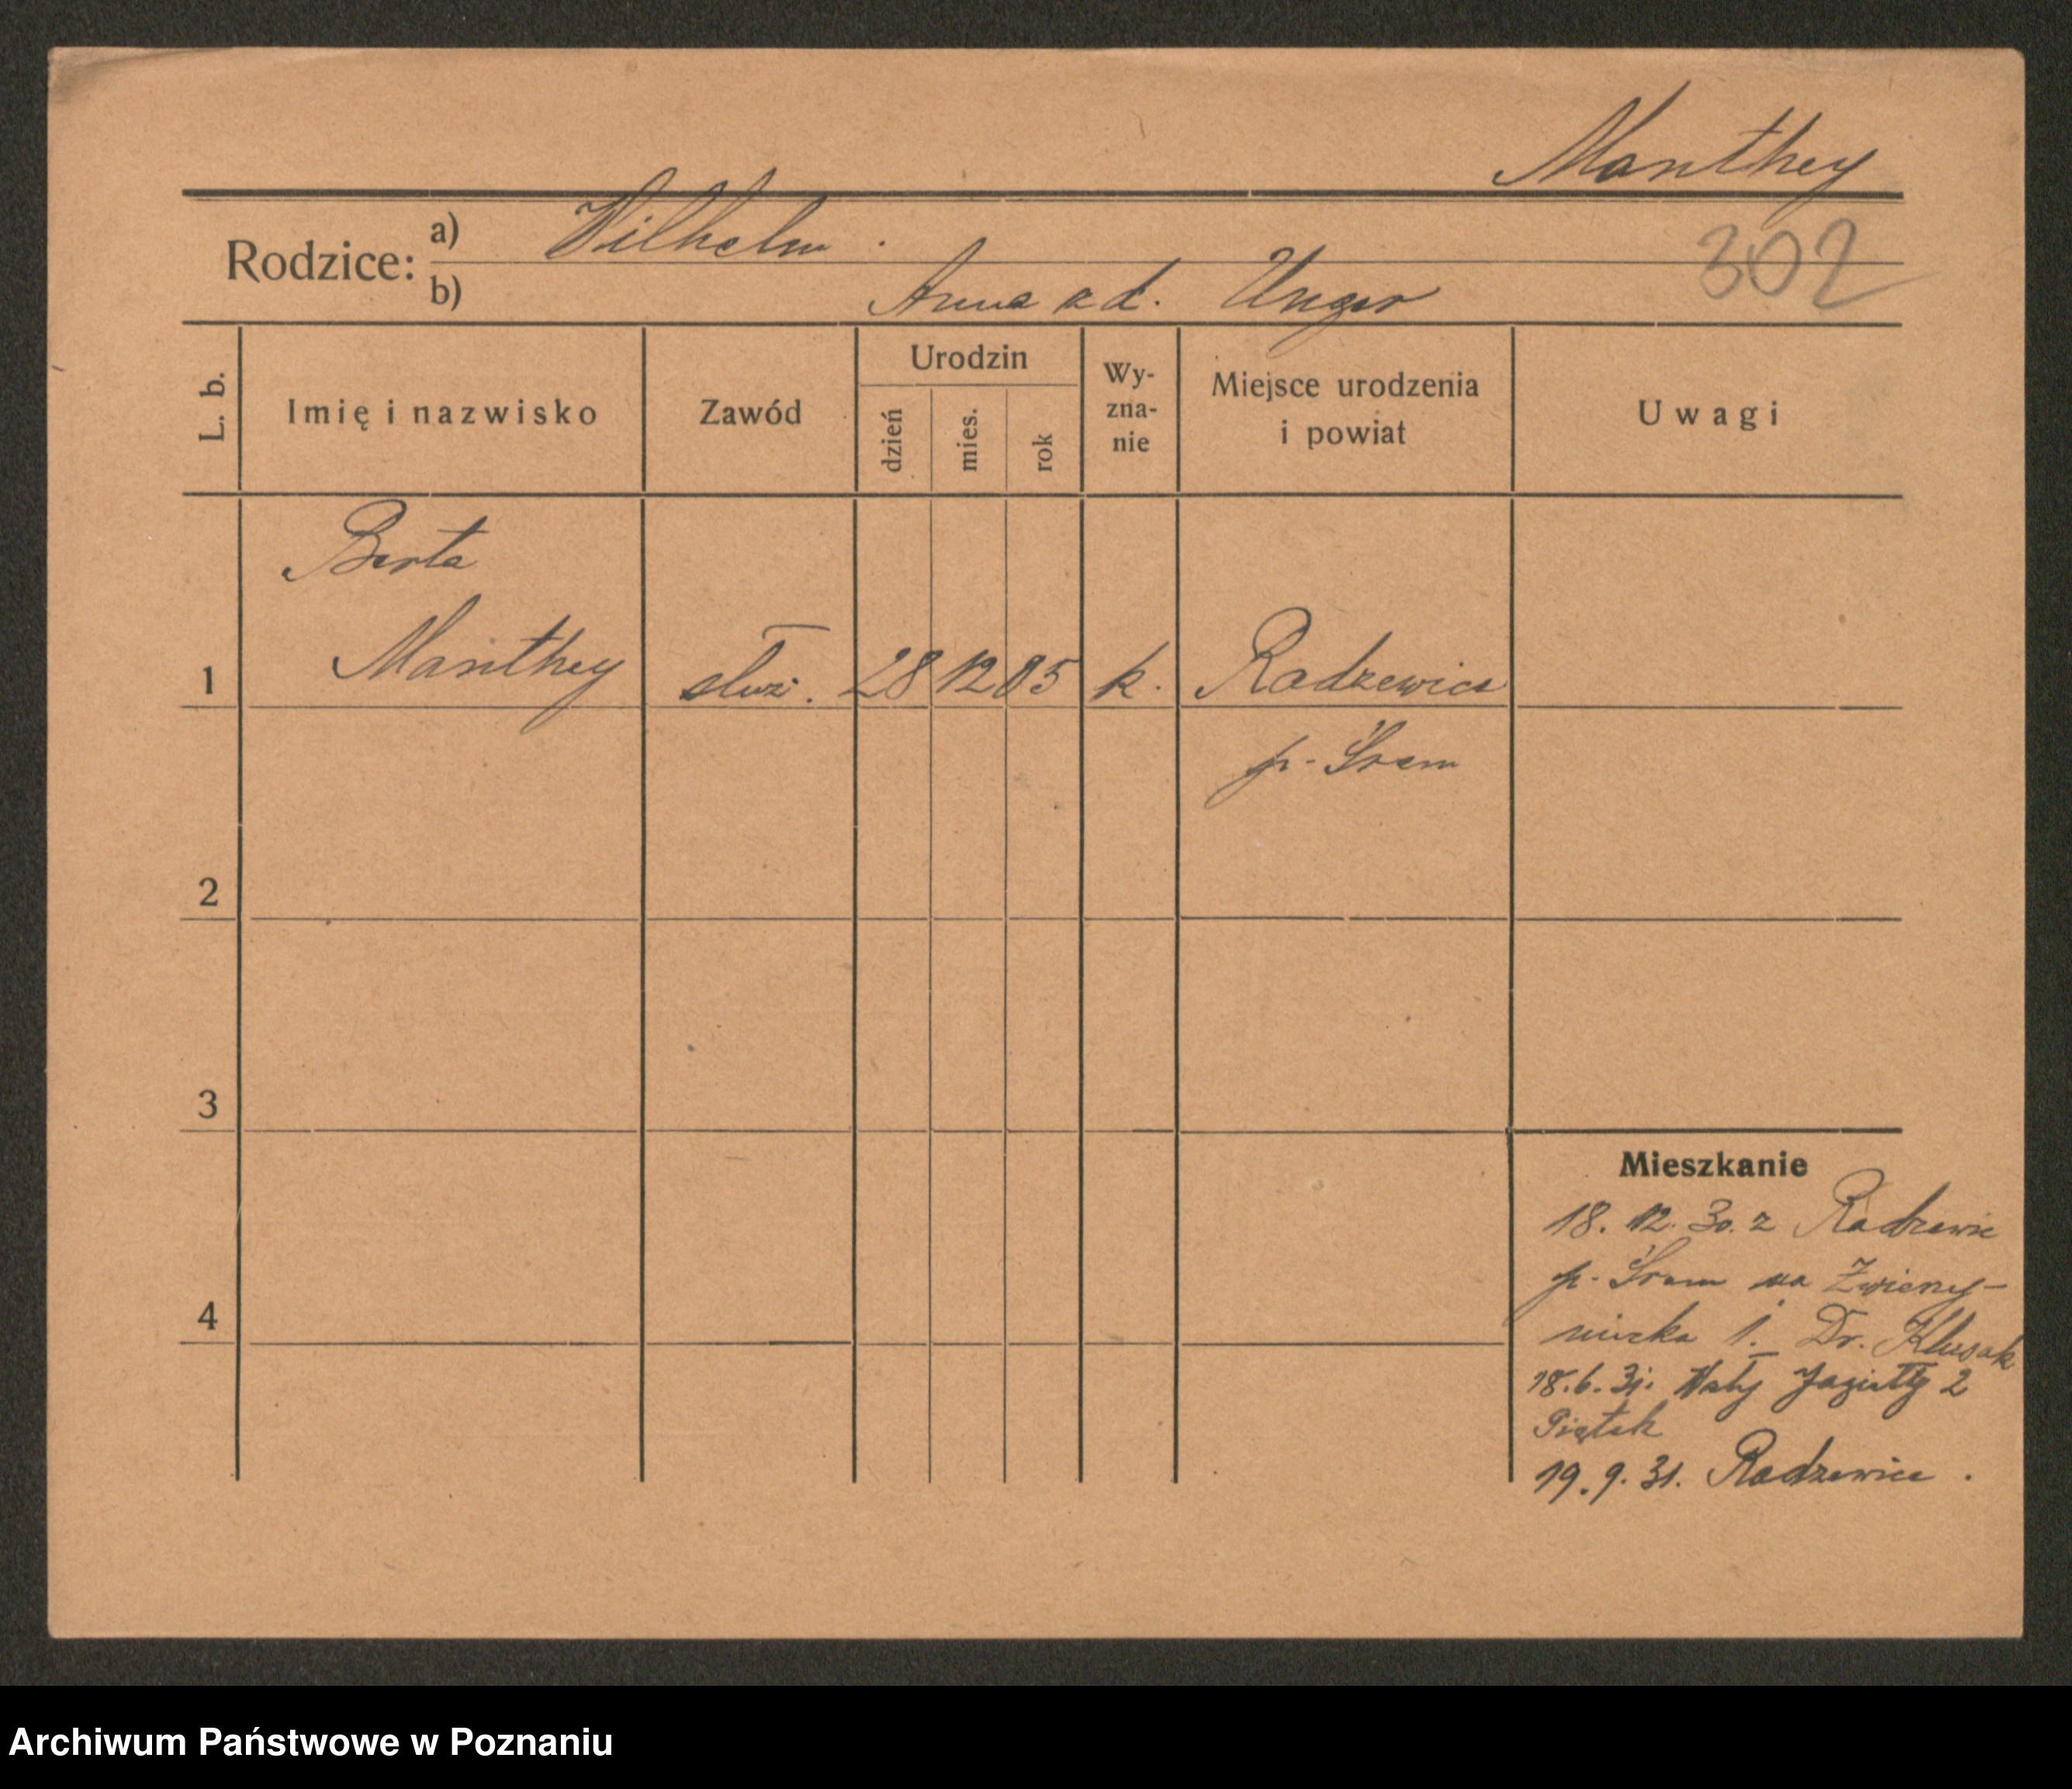 Manthey
302
Rodzice: a) Wilhelm.
b) Anna zd. Unger
L. b.
Imię i nazwisko
Zawód
Urodzin
dzień
mies.
rok
Wy-
zna-
nie
Miejsce urodzenia
i powiat
Uwagi
Berta
1 Manthey służ. 28 12 05 k. Radzewice
p. Śrem
2
3
4
Mieszkanie
18. 12. 30. z Radzewic
p. Śrem na Zwierzy-
niecka 1. Dr. Klusak
18.6.31. Wały Jagiełły 2
Piątek
19.9.31. Radzewice.
Archiwum Państwowe w Poznaniu